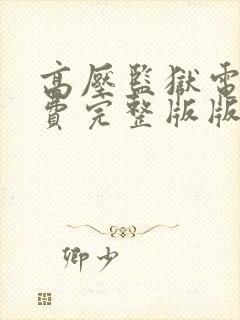 高壓監獄電
費完整版版
卿少